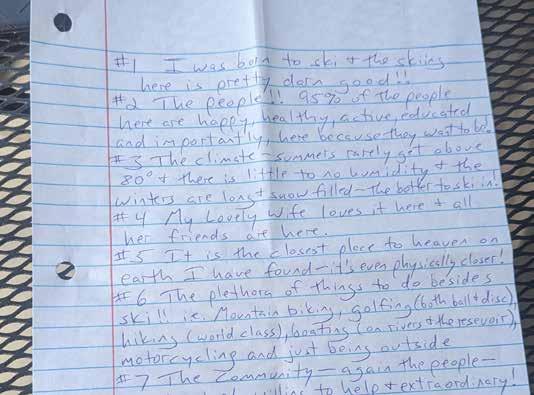 #1 I was born to ski & the skiing
here is pretty darn good!!
#2 The people!! 95% of the people
here are happy, healthy, active, educated
and importantly, here because they want to be.
#3 The climate - summers rarely get above
80° & there is little to no humidity & the
winters are long & snow filled - the better to ski in!
#4 My Lovely Wife loves it here & all
her friends are here.
#5 It is the closest place to heaven on
earth I have found - it's even physically closer!
#6 The plethora of things to do besides
ski!! i.e. Mountain biking, golfing (both ball & disc),
hiking (world class), boating (on rivers & the resevoir),
motorcycling and just being outside
#7 The Community - again the people -
to help & extraordinary!